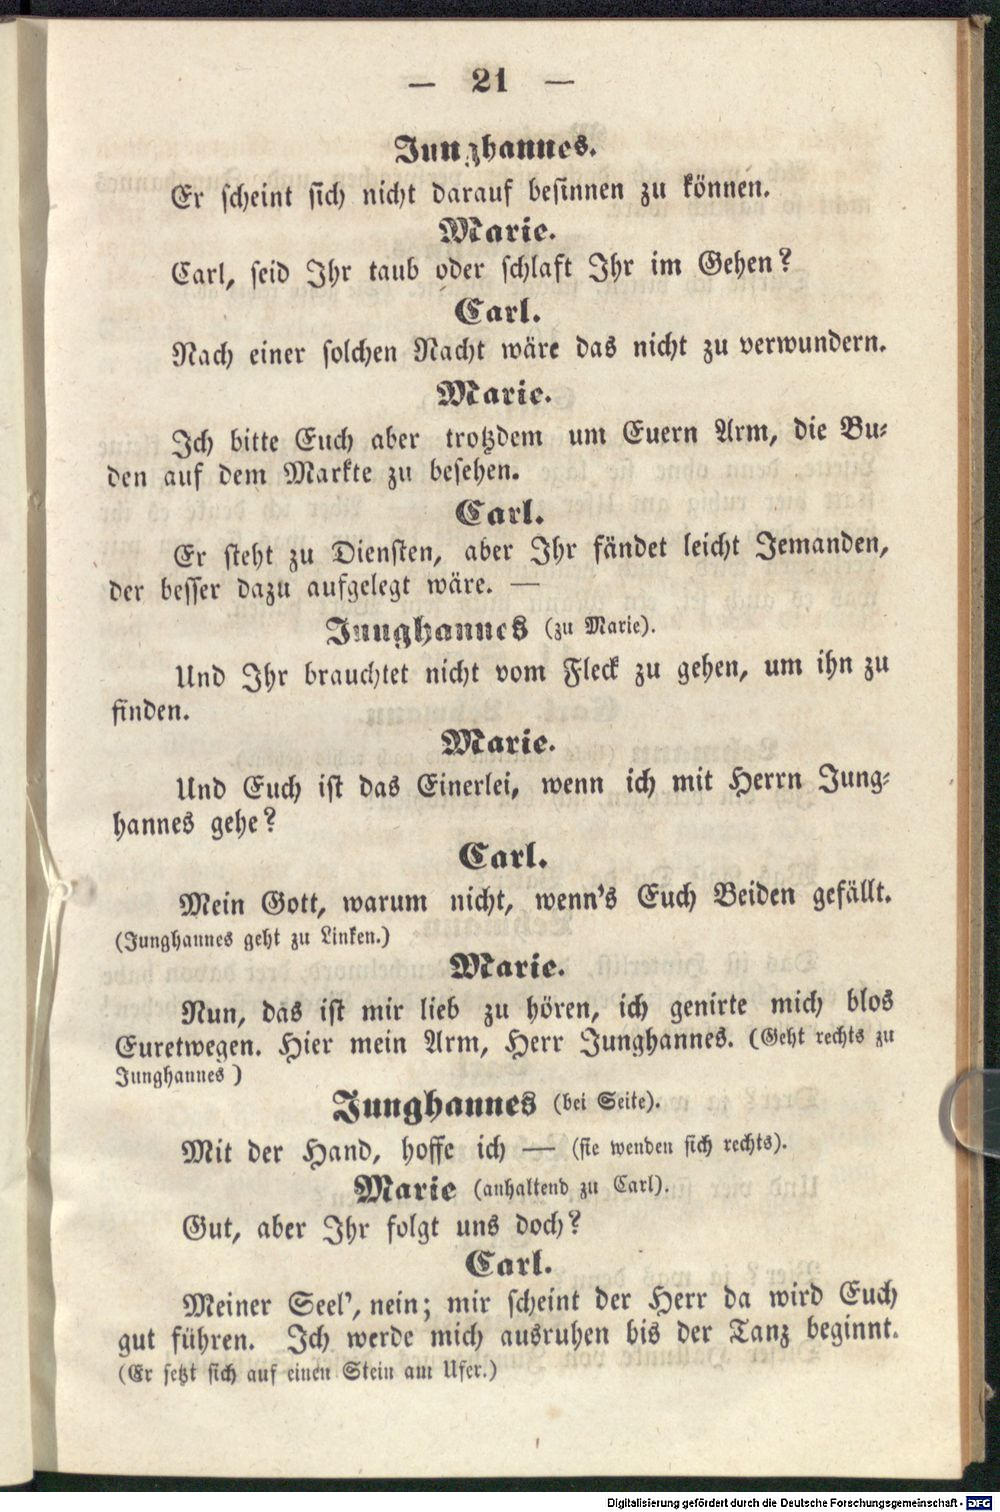 — 21 —
Junghannes.
Er scheint sich nicht darauf besinnen zu können.
Marie.
Carl, seid Ihr taub oder schlaft Ihr im Gehen?
Carl.
Nach einer solchen Nacht wäre das nicht zu verwundern.
Marie.
Ich bitte Euch aber trotzdem um Euern Arm, die Bu-
den auf dem Markte zu besehen.
Carl.
Er steht zu Diensten, aber Ihr fändet leicht Jemanden,
der besser dazu aufgelegt wäre. —
Junghannes (zu Marie).
Und Ihr brauchtet nicht vom Fleck zu gehen, um ihn zu
finden.
Marie.
Und Euch ist das Einerlei, wenn ich mit Herrn Jung-
hannes gehe?
Carl.
Mein Gott, warum nicht, wenn's Euch Beiden gefällt.
(Junghannes geht zu Linken.)
Marie.
Nun, das ist mir lieb zu hören, ich genirte mich blos
Euretwegen. Hier mein Arm, Herr Junghannes. (Geht rechts zu
Junghannes)
Junghannes (bei Seite).
Mit der Hand, hoffe ich — (sie wenden sich rechts).
Marie (anhaltend zu Carl).
Gut, aber Ihr folgt uns doch?
Carl.
Meiner Seel', nein; mir scheint der Herr da wird Euch
gut führen. Ich werde mich ausruhen bis der Tanz beginnt.
(Er setzt sich auf einen Stein am Ufer.)
Digitalisierung gefördert durch die Deutsche Forschungsgemeinschaft - DFG